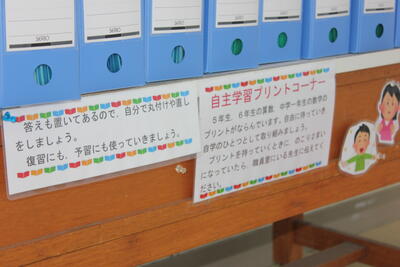 SEKISEI
SEKISEI
SEKISEI
答えも置いてあるので、自分で丸付けや直し
をしましょう。
復習にも、予習にも使っていきましょう。
自主学習プリントコーナー
５年生、６年生の算数、中学一年生の数学の
プリントがならんでいます。自由に持っていき
自学のひとつとして取り組みましょう。
プリントを持っていくときに、のこり２まい
になっていたら、職員室にいる先生に伝えてく
ださい。